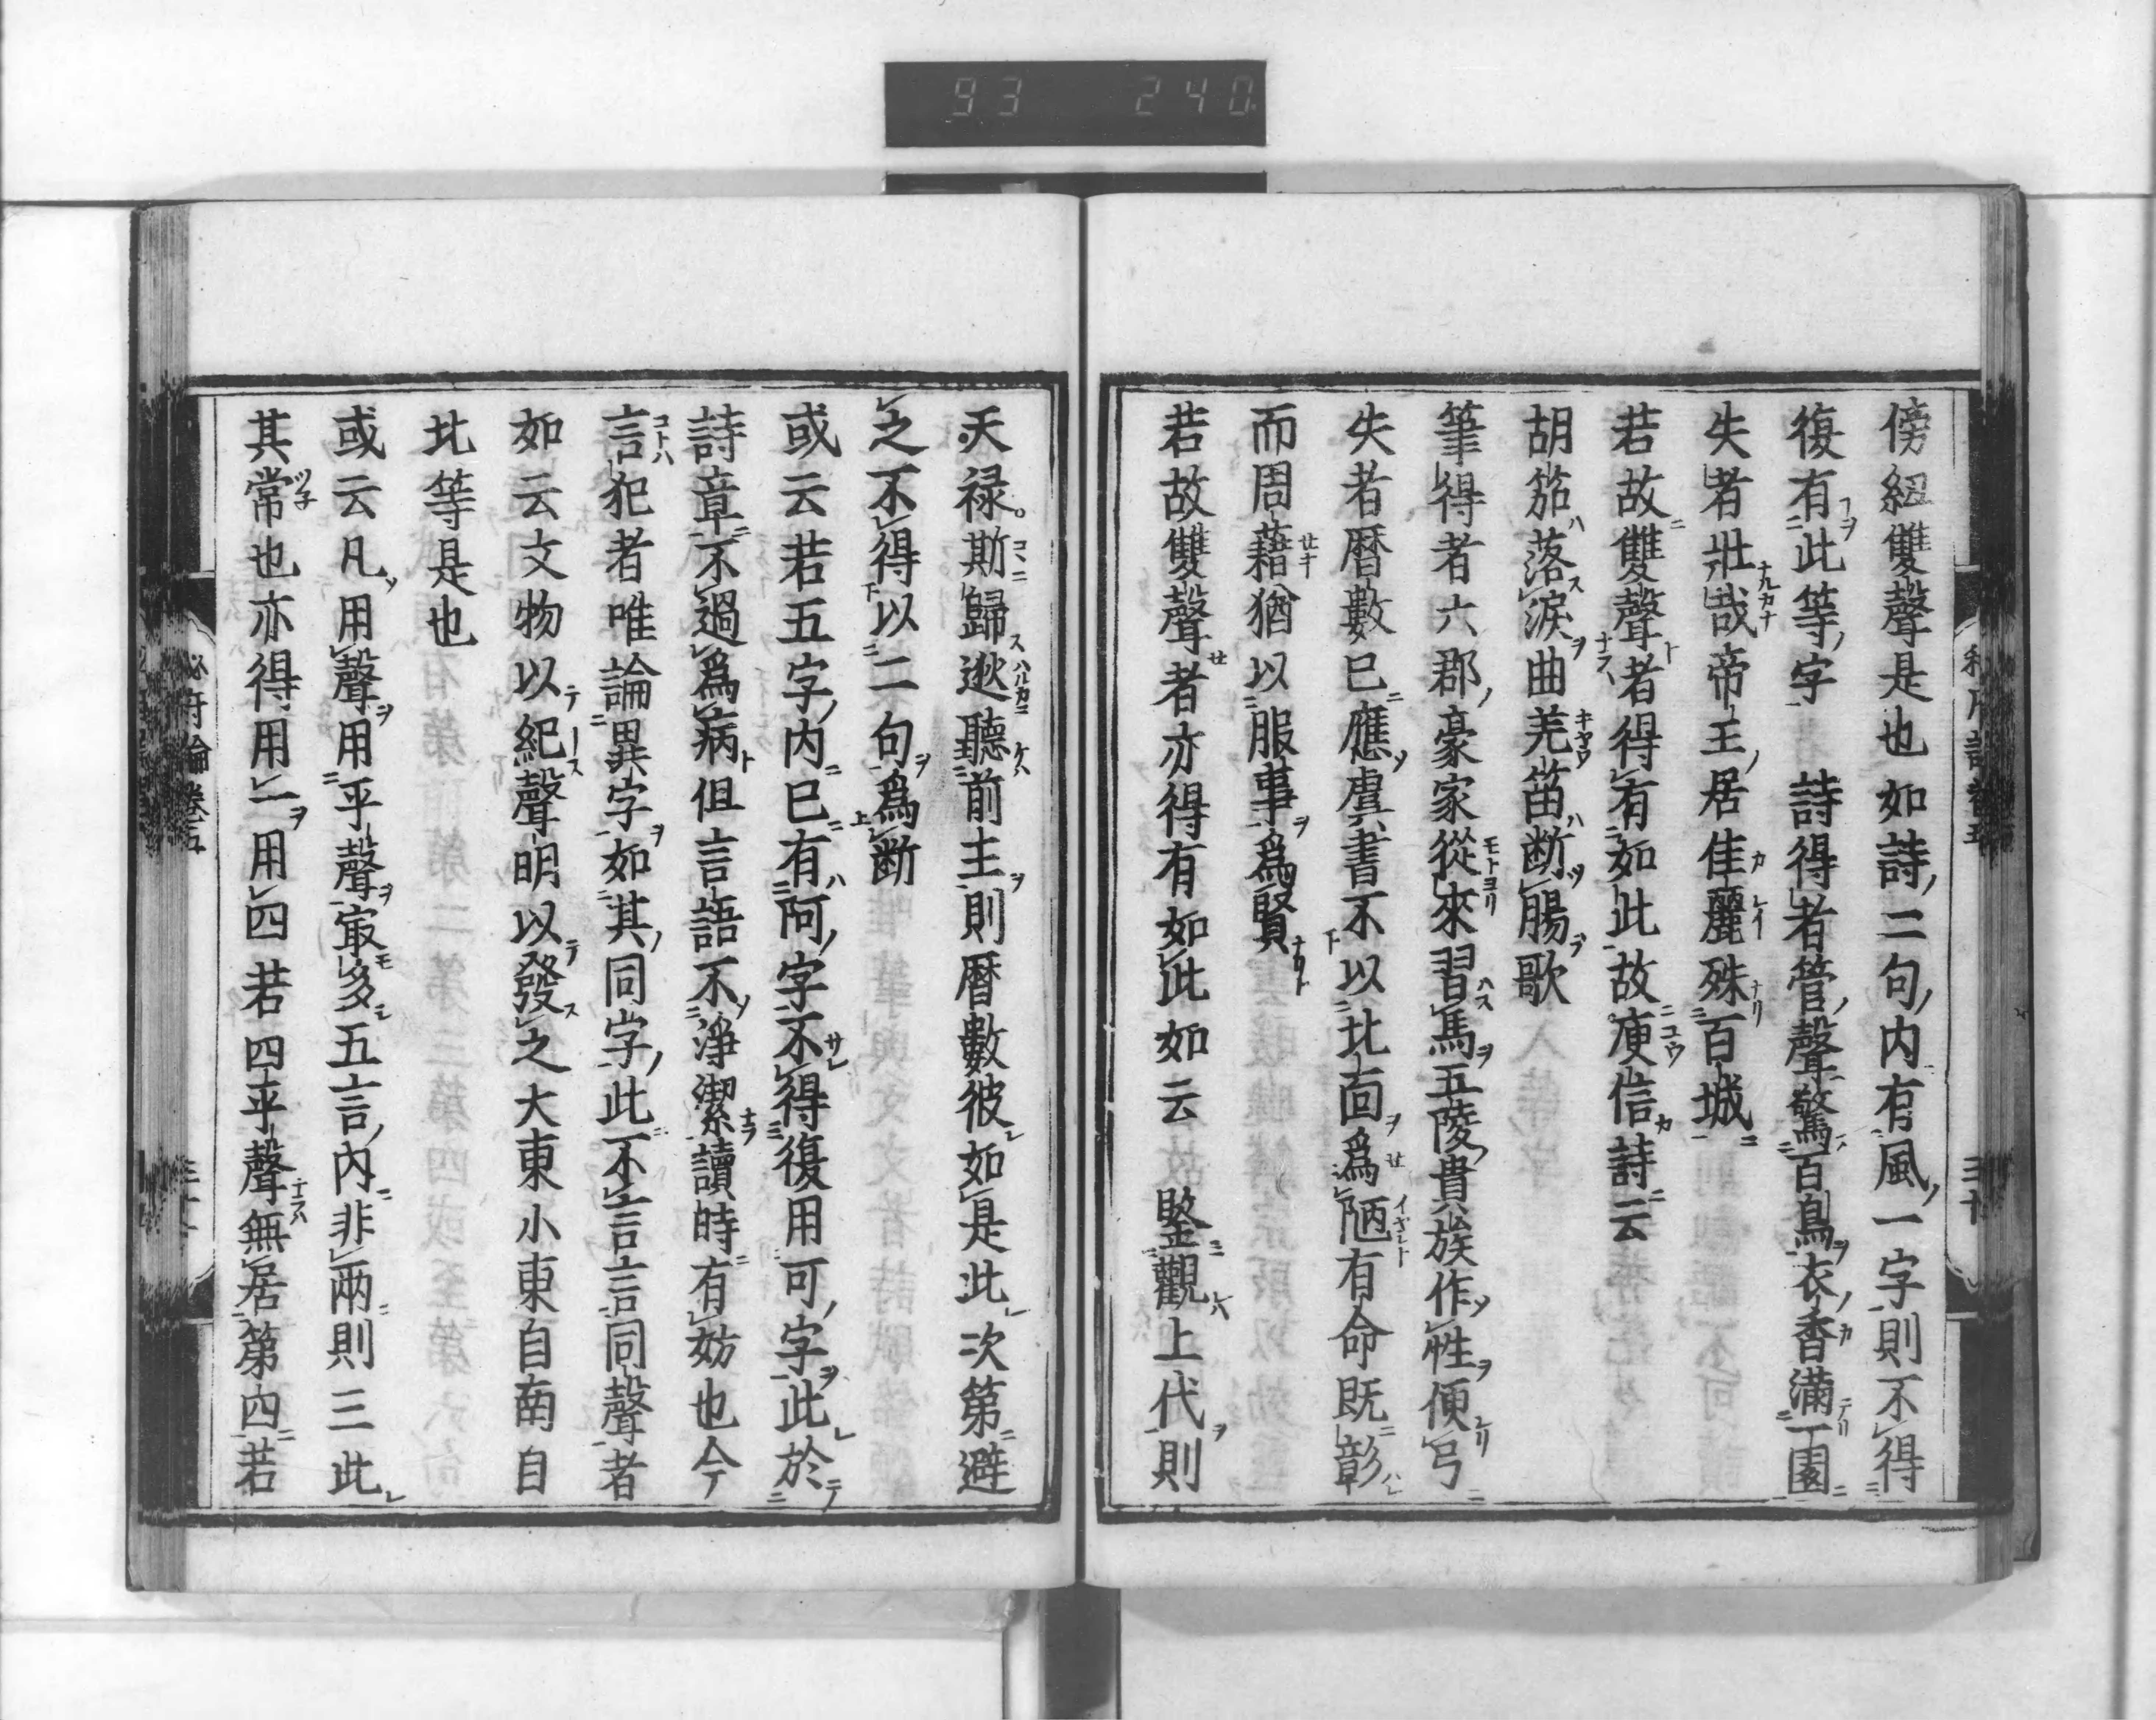 93 240
傍紐雙聲是也如詩二句内有風一字則不得
復有此等字　詩得者管聲驚百鳥衣香滿一園
失者壯哉帝王居佳麗殊百城
若故雙聲者得有如此故庾信詩云
胡笳落淚曲羌笛断腸歌
筆得者六郡豪家從來習馬五陵貴族作性便弓
失者暦數已應虞書不以北面爲陋有命既彰
而周藉猶以服事爲賢
若故雙聲者亦得有如此如云　鑒觀上代則
天禄斯歸逖聽前主則暦數彼如是此次第避
之不得以二句爲断
或云若五字内已有阿字不得復用可字此於
詩章不過爲病但言語不淨潔讀時有妨也今
言犯者唯論異字如其同字此不言言同聲者
如云文物以紀聲明以發之大東小東自南自
北等是也
或云凡用聲用平聲冣多五言内非兩則三此
其常也亦得用一用四若四平聲無居第四若
祕府論卷五